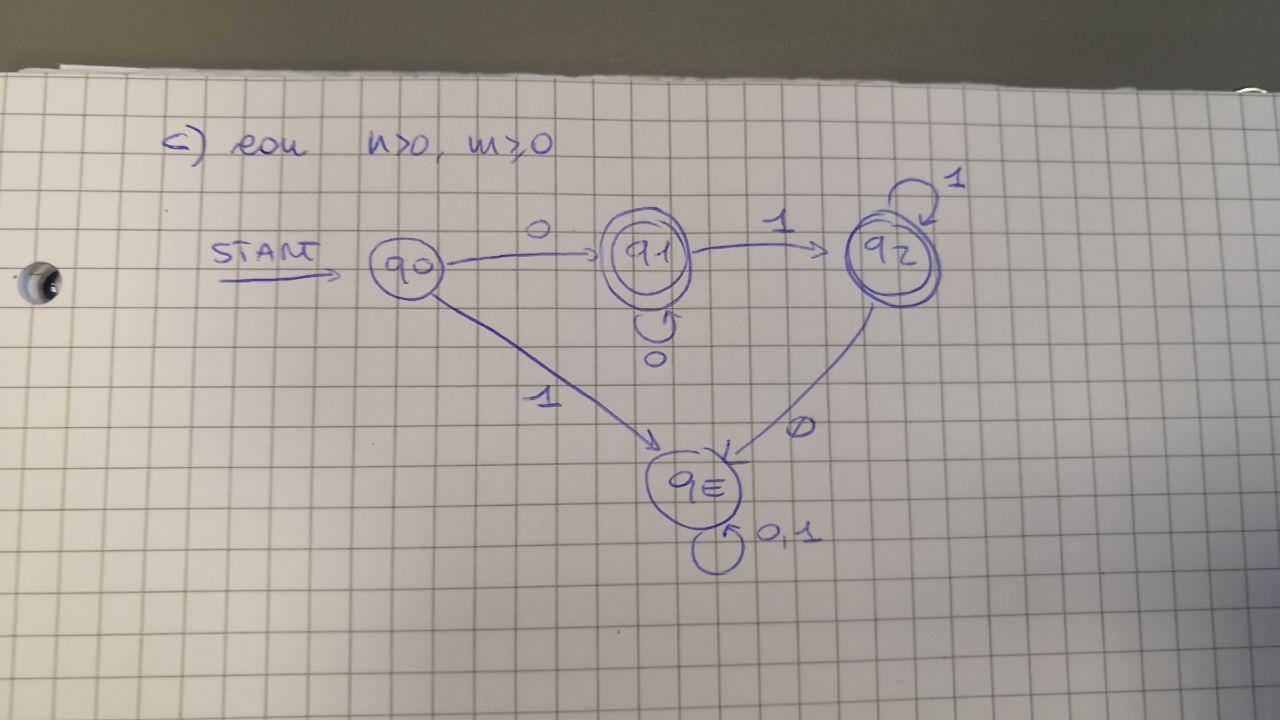 c) con n>0, m≥0
START
q0
0
q1
0
1
q2
1
1
0
qE
0,1